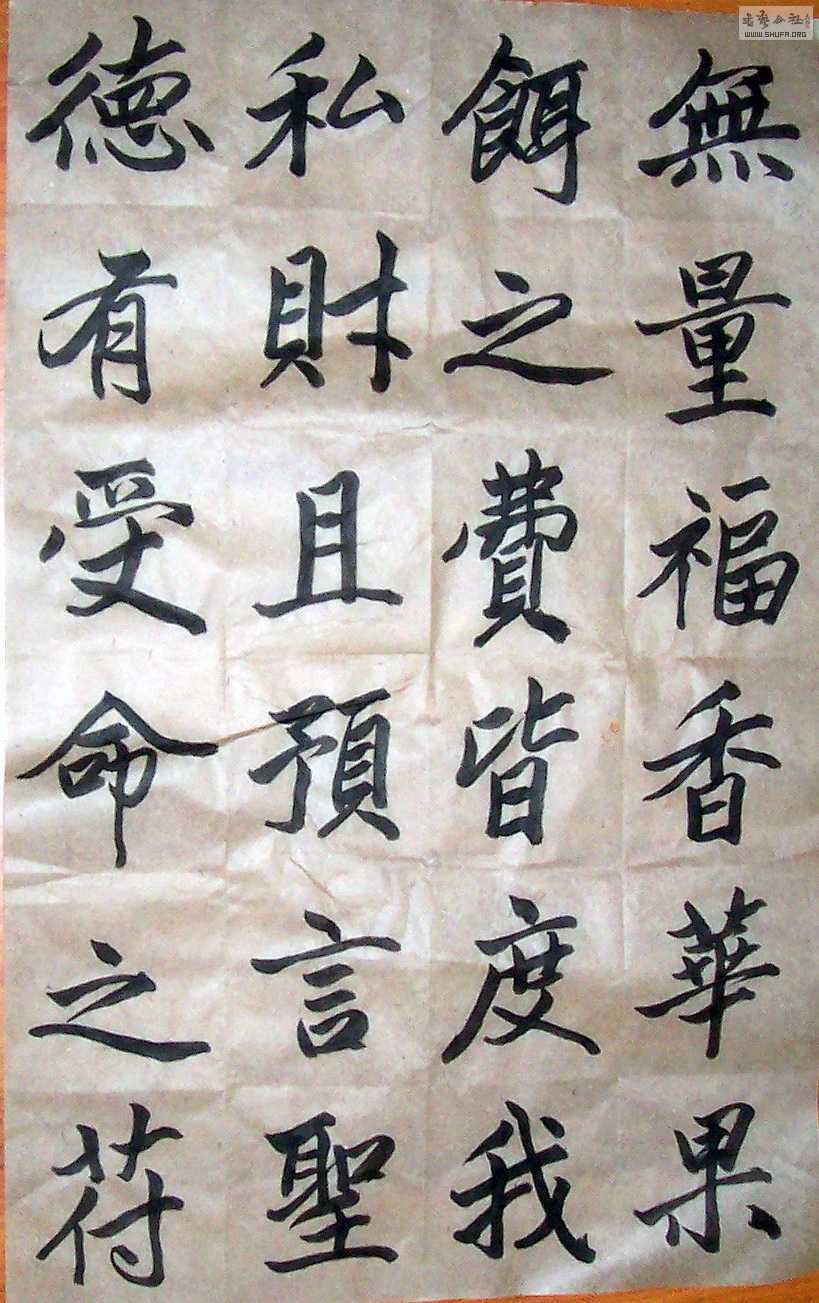 無量福香華果
餌之費皆度我
私財且預言聖
德有受命之苻
WWW.SHUFA.ORG